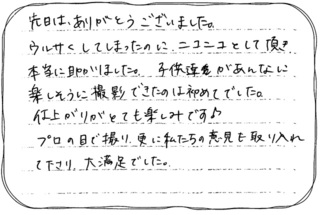 先日は、ありがとうございました。
ウルサくしてしまったのに、ニコニコとして頂き
本当に助かりました。子供達があんなに
楽しそうに撮影できたのは初めてでした。
仕上がりがとても楽しみです♪
プロの目で撮り、更に私たちの意見も取り入れ
て下さり、大満足でした。